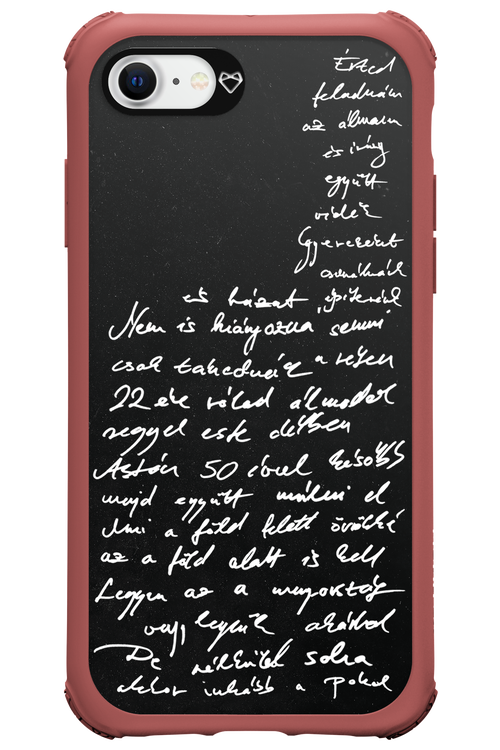 Érted
feladnám
az álmom
és így
együtt
veled
Gyereket
csinálnánk
és házat építenénk
Nem is hiányozna semmi
csak takarónk a réten
22 éve rólad álmodok
reggel este délben
Aztán 50 évvel később
majd együtt múlni el
Ami a föld felett örökké
az a föld alatt is kell
Legyen az a mennyország
vagy legyünk akárhol
De nélküled soha
akkor inkább a Pokol